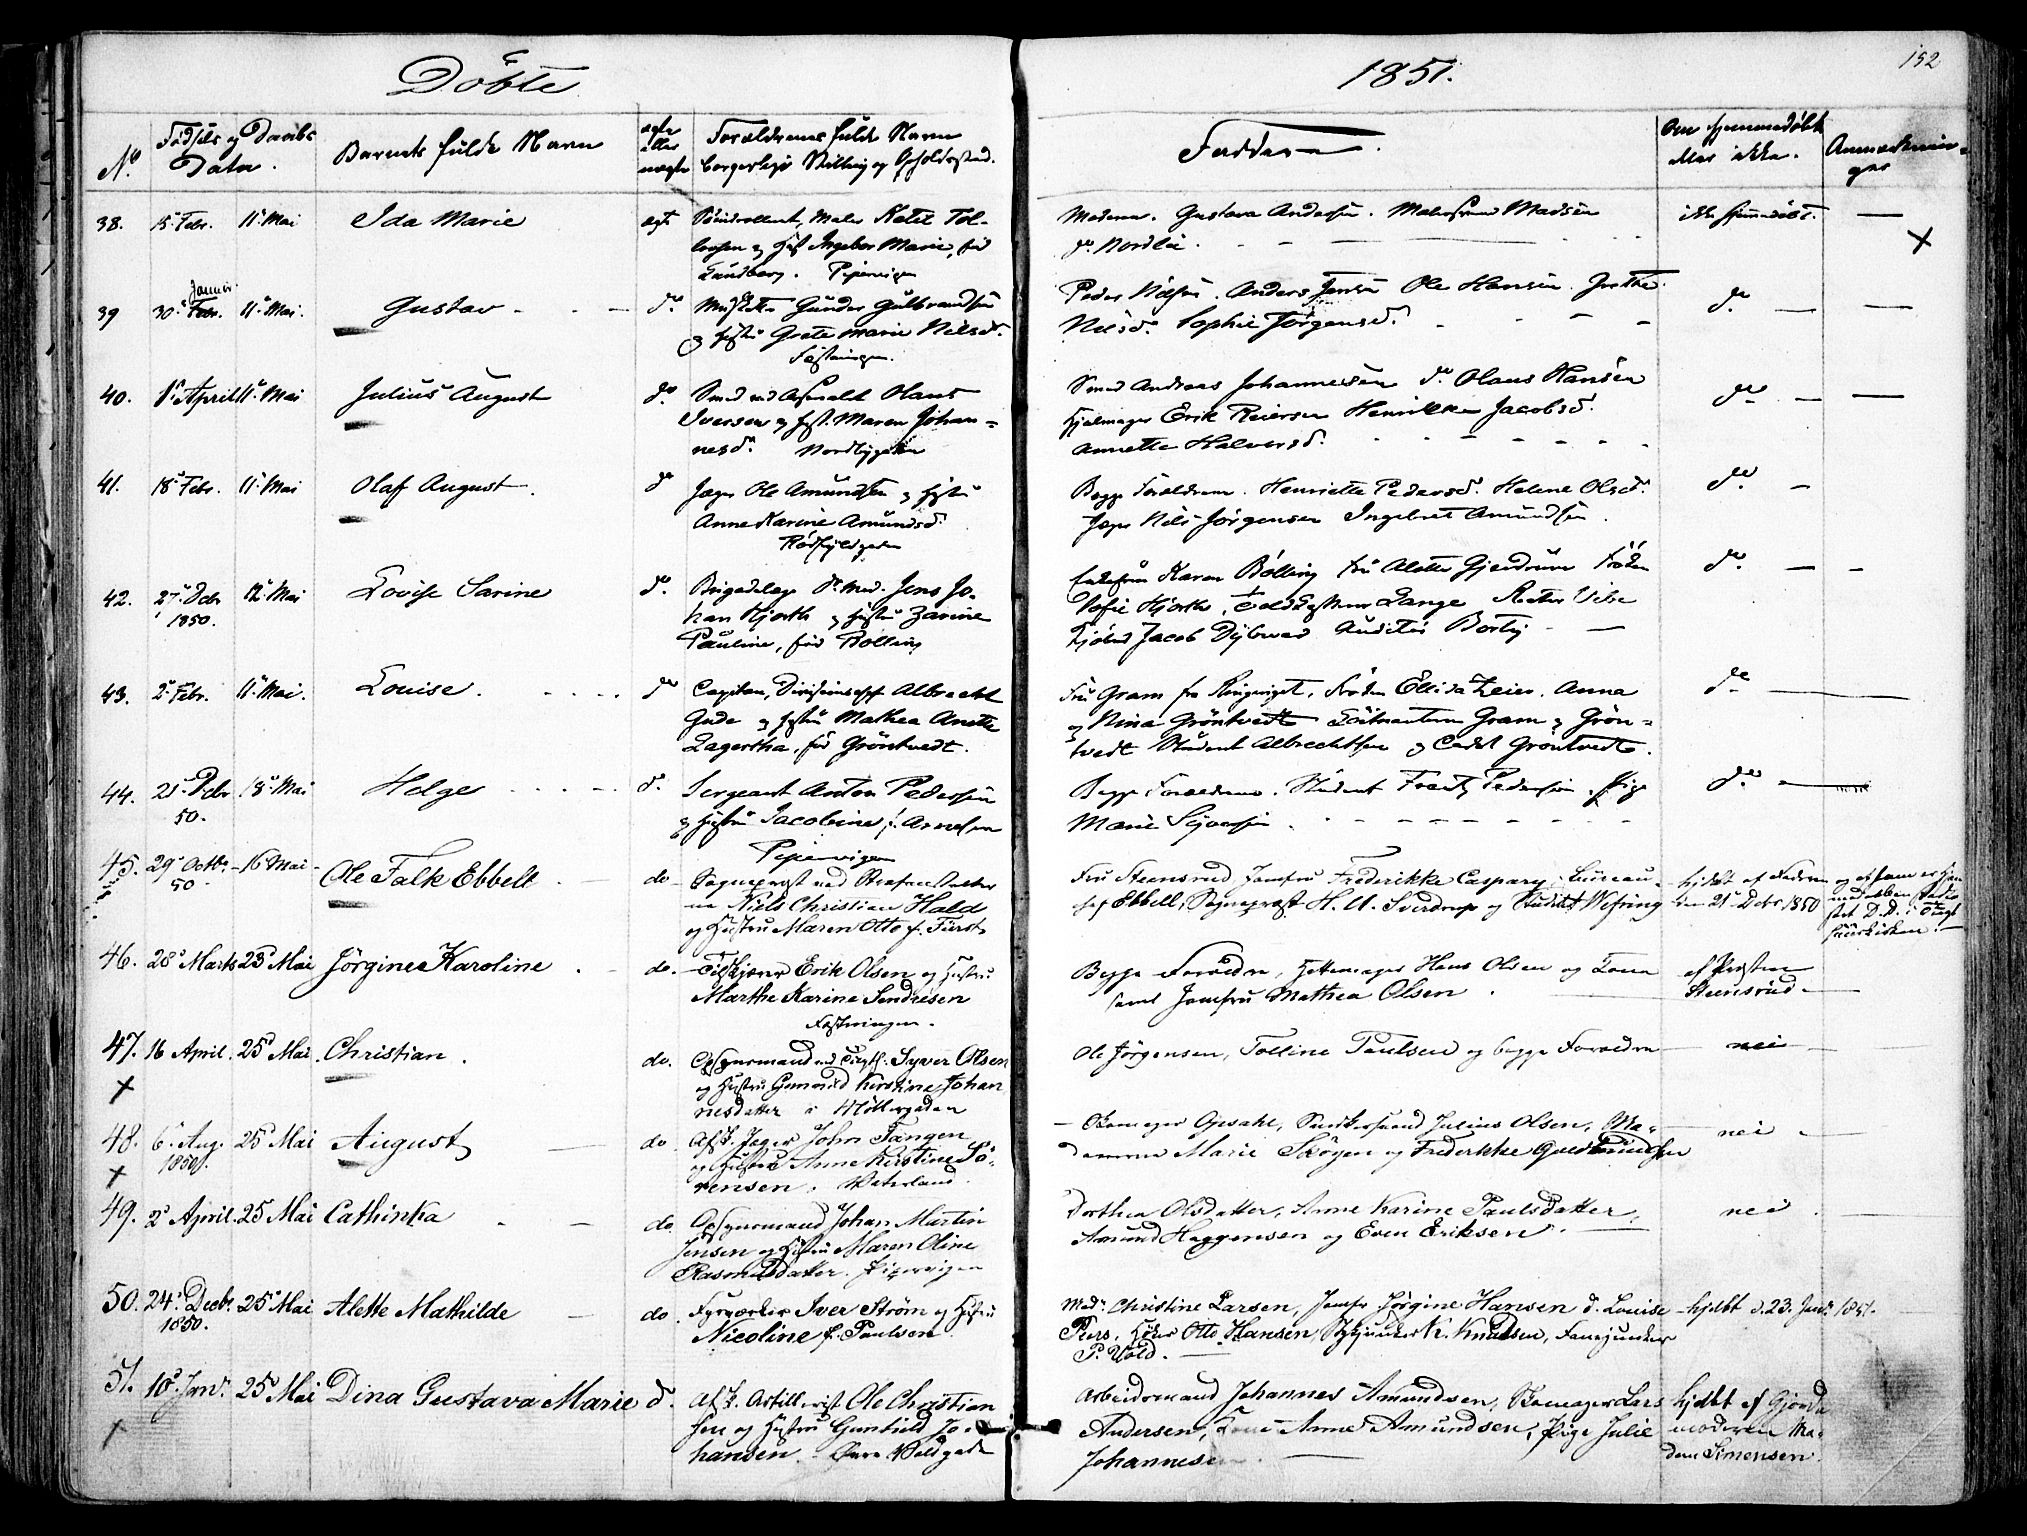 Döbte
1851.
152
No.
Fødsels og Daabs Datum.
Barnets fulde Navn
ægte eller uægte
Forældrenes fulde Navn borgerlige Stilling og Opholdssted.
Faddere.
Om hjemmedøbt eller ikke.
Anmærkninger
38. 15 Febr. 11 Mai Ida Marie ægt
Ingebor Marie, fød
Sundberg. Pipervigen
Madam Gustava Andersen. Madsen
do Nordlie.
ikke hjemmedøbt. —
39 30 Febr. Januar 11 Mai. Gustav do
Gunder Gulbrandsen
og Hustru Grete Marie Nilsd.
Fæstningen.
Peder Nilsen. Anders Jensen Ole Hansen
Nilsd. Sophie Jörgensd.
do — —
40. 1 April 11 Mai Julius August do
Smed Hans
Iversen og Hust. Maren Johan=
nesd.
Smed Andreas Johannesen do Olaus Hansen
Hjulmager Erik Reiersen Henrikke Jacobsd.
Annette Halvorsd.
do — —
41. 18 Febr. 11 Mai Olaf August do
Jæger Ole Amundsen og Hustru
Anne Karine Amundsd.
Rødfyldgaden
Begge Forældrene. Henriette Pedersd. Helene Olsd.
Jæger Nils Jörgensen Ingebret Amundsen.
do —
42. 27 Dcbr 1850. 12 Mai Lovise Sarine do
Jens Jo-
han Hjorth og Hustru Zarine
Pauline, fød Bølling
Enkefru Karen Bölling Fru Alette Gjerdrum Frøken
Sofie Hjorth, Lange Vibe
Jacob Dybwad Auditør
do — —
43. 2 Febr. 11 Mai. Louise. do
Capitain, Divisionschef Albrecht
Gude og Hustru Mathea Anette
Lagertha, fød Gröntvedt.
Fru Gram fra Ringeriget, Frøken Anna
og Nina Gröntvedt Gram og Grön=
tvedt Student Albrechtsen og Cadet Gröntvedt.
do —
44. 21 Dcbr 50. 18 Mai Helge do
Sergeant Anton Pedersen
og Hustru Jacobine, f. Arnesen
Pipervigen
Begge Forældrene. Student Frantz Pedersen. Pige
Marie
do —
45. 29 Octbr. 50 16 Mai Ole Falk Ebbell do
Sogneprest ved
Niels Christian Hald
og Hustru Maren Otto f. Fürst
Fru Steensrud, Jomfru Frederikke Caspary, Bureau-
chef Ebbell, Sogneprest H. U. Sverdrup og Wefring
hjdbt af Faderen
den 21 Decbr 1850
46. 28 Marts 23 Mai Jörgine Karoline do.
Erik Olsen og Hustru
Marthe Karine Sendresen
Fæstningen.
Begge Forældre, Hattemager Hans Olsen og Kone
samt Jomfru Mathea Olsen.
af Presten
Steensrud —
47. 16 April. 25 Mai. Christian. do.
Opsynsmand ved Tugth. Syver Olsen
og Hustru Gunnild Kirstine Johan
nesdatter i Möllergaden
Ole Jörgensen, Tolline Paulsen og begge Forældre — nei —
48. 6 Aug. 1850. 25 Mai August do
Afsk. Jæger John Tangen
og Hustru Anne Kirstine Sö-
rensen, Waterland.
Skomager Gjesahl, Snedkersvend Julius Olsen, Ma-
damerne Marie Skögen og Frederikke Guldbrandsen
nei —
49. 2 April. 25 Mai Cathinka do
Opsynsmand Johan Martin
Jensen og Hustru Maren Oline
Rasmusdatter. Pipervigen
Dorthea Olsdatter, Anne Karine Paulsdatter,
Amund Haggensen og Even Eriksen.
nei —
50. 24 Decbr. 1850. 25 Mai Alette Mathilde do
Fyrværker Iver Ström og Hustru
Nicoline f. Paulsen.
Mad. Christine Larsen, Jomfr Jörgine Hansen d. Louise
Otto Hansen, K. Knudsen, Fanejunker
P. Wold. —
hjdbt d. 23. Jan. 1851.
51. 10 Jan. 25 Mai Dina Gustava Marie d.
Afsk. Artillerist Ole Christian
sen og Hustru Gunhild Jo-
hansen. — Övre Voldgade
Arbeidsmand Johannes Amundsen, Skomager Lars
Andersen, Kone Anne Amundsen, Pige Julie
Johannesen.
hjdbt af Gjorde
moderen Ma-
dam Simensen.